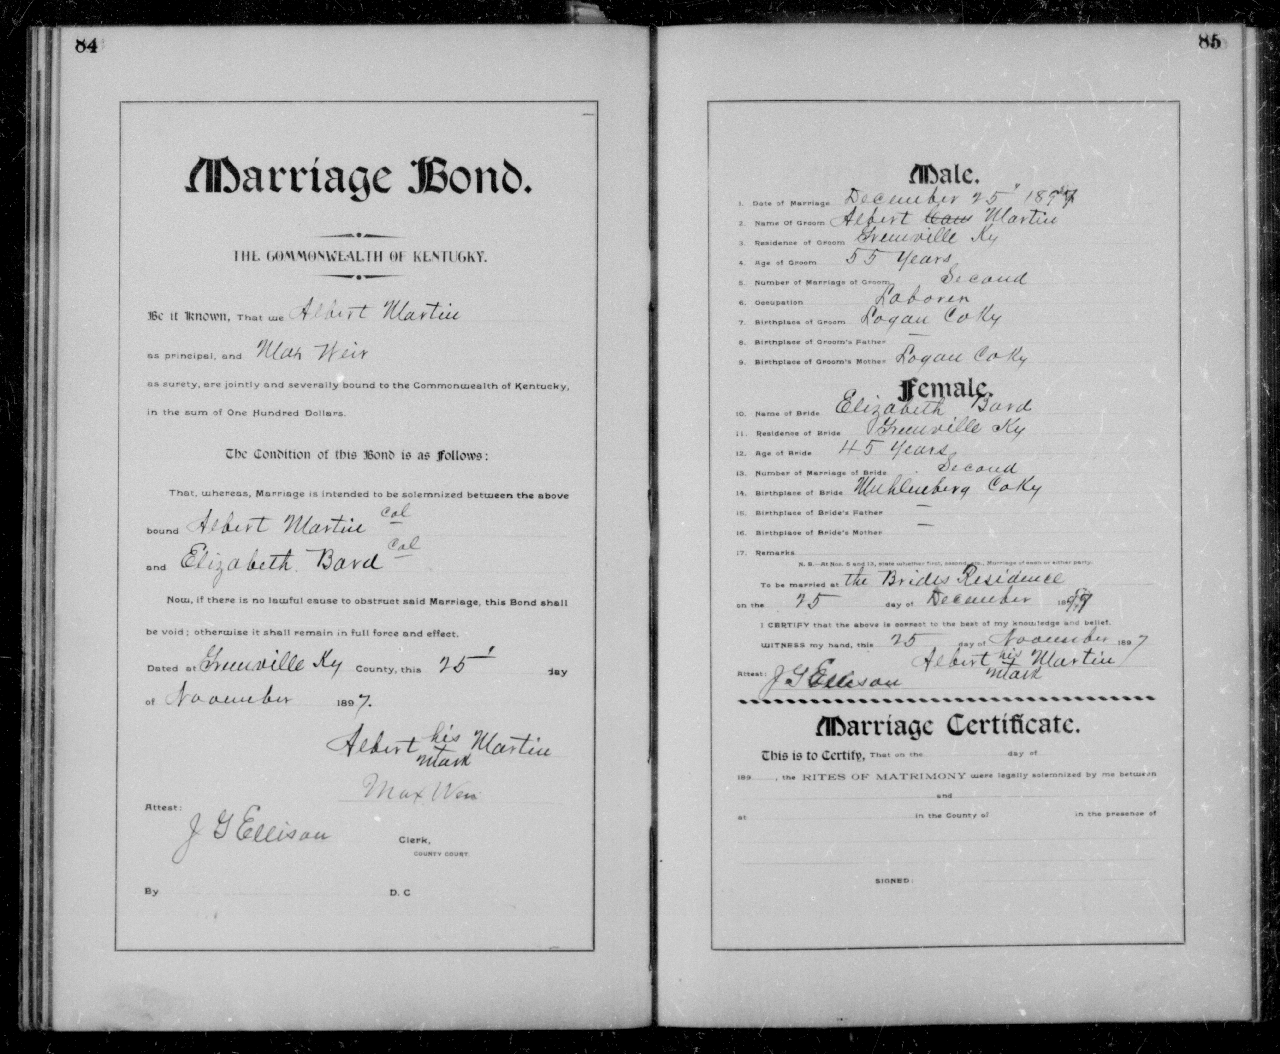 84
Marriage Bond.
THE COMMONWEALTH OF KENTUCKY.
Be it Known, That we Albert Martin
as principal, and Max Weir
as surety, are jointly and severally bound to the Commonwealth of Kentucky,
in the sum of One Hundred Dollars.
The Condition of this Bond is as Follows:
That, whereas, Marriage is intended to be solemnized between the above
bound Albert Martin Col
and Elizabeth Bard Col
Now, if there is no lawful cause to obstruct said Marriage, this Bond shall
be void; otherwise it shall remain in full force and effect.
Dated at Greenville Ky County, this 25' day
of November 1897.
Albert his Martin
mark
Max Weir
Attest:
J G Ellison
Clerk,
COUNTY COURT.
By D. C
85
Male.
1. Date of Marriage December 25" 1897
2. Name Of Groom Albert Martin
3. Residence of Groom Greenville Ky
4. Age of Groom 55 Years
5. Number of Marriage of Groom Second
6. Occupation Laborer
7. Birthplace of Groom Logan Co Ky
8. Birthplace of Groom's Father —
9. Birthplace of Groom's Mother Logan Co Ky
Female.
10. Name of Bride Elizabeth Bard
11. Residence of Bride Greenville Ky
12. Age of Bride 45 Years
13. Number of Marriage of Bride Second
14. Birthplace of Bride Muhlenberg Co Ky
15. Birthplace of Bride's Father —
16. Birthplace of Bride's Mother —
17. Remarks
N. B.—At Nos. 5 and 13, state whether first, second, etc., Marriage of each or either party.
To be married at the Brides Residence
on the 25 day of December 1897
I CERTIFY that the above is correct to the best of my knowledge and belief.
WITNESS my hand, this 25 day of November 1897
Albert his Martin
mark
Attest: J G Ellison
Marriage Certificate.
This is to Certify, That on the day of
189 , the RITES OF MATRIMONY were legally solemnized by me between
and
at in the County of in the presence of
SIGNED: